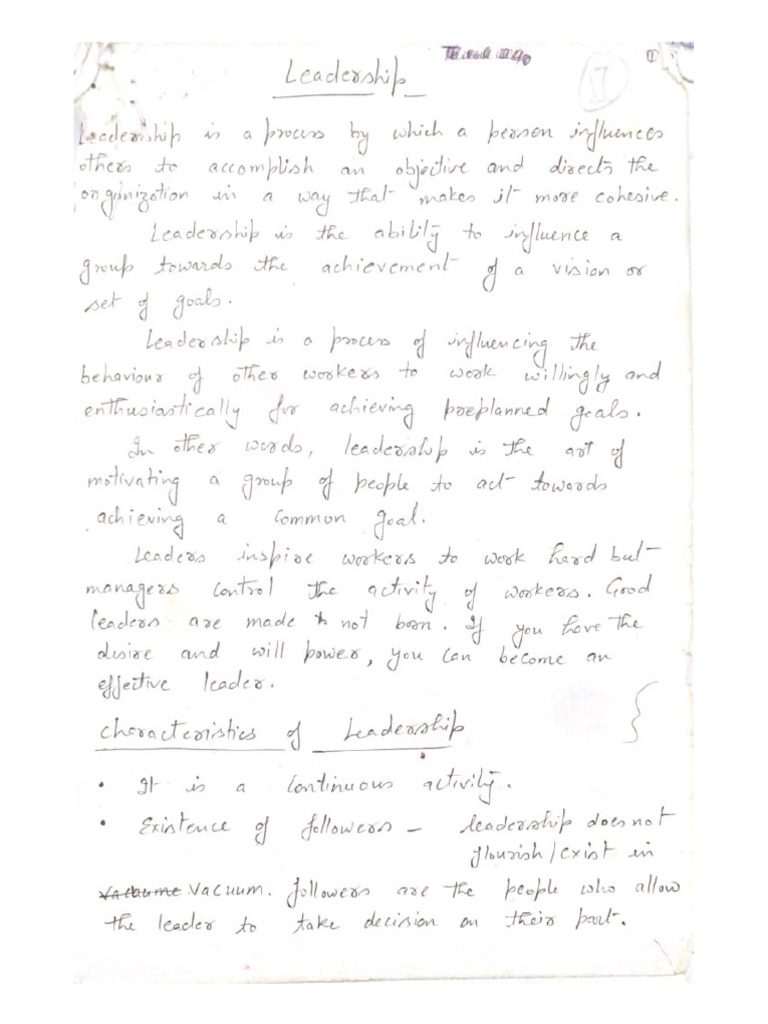 Leadership
Leadership is a process by which a person influences
others to accomplish an objective and directs the
organization in a way that makes it more cohesive.
Leadership is the ability to influence a
group towards the achievement of a vision or
set of goals.
Leadership is a process of influencing the
behaviour of other workers to work willingly and
enthusiastically for achieving preplanned goals.
In other words, leadership is the art of
motivating a group of people to act towards
achieving a common goal.
Leaders inspire workers to work hard but
managers control the activity of workers. Good
leaders are made not born. If you have the
desire and will power, you can become an
effective leader.
Characteristics of Leadership
• It is a continuous activity.
• Existence of followers – leadership does not
flourish/exist in
vacuum. followers are the people who allow
the leader to take decision on their part.